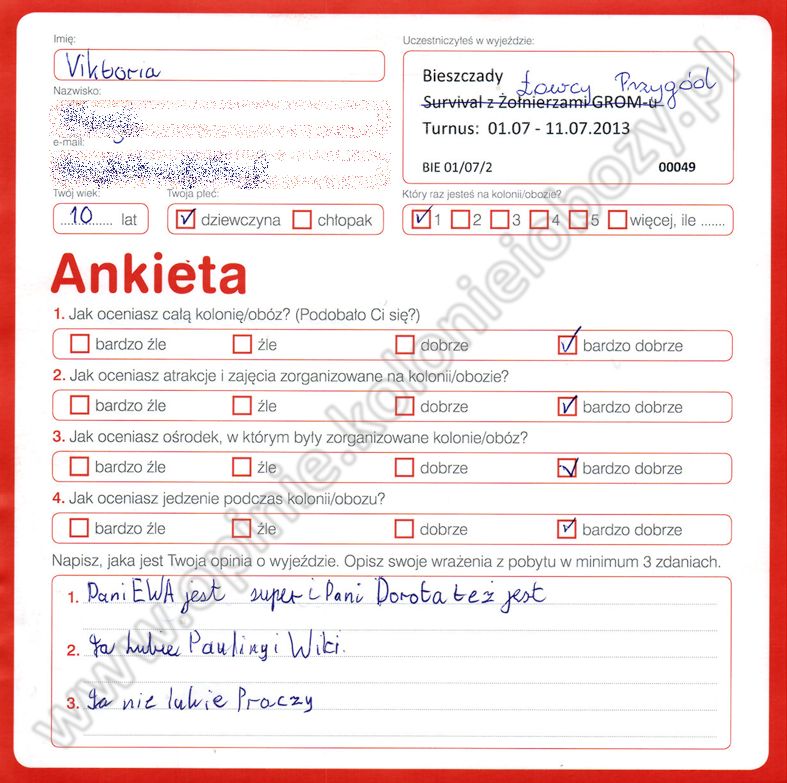 Imię:
Viktoria
Nazwisko:
e-mail:
Twój wiek:
10 lat
Twoja płeć:
dziewczyna chłopak
Uczestniczyłeś w wyjeździe:
Bieszczady Łowcy Przygód
Survival z Żołnierzami GROM-u
Turnus: 01.07 - 11.07.2013
BIE 01/07/2 00049
Który raz jesteś na kolonii/obozie?
1 2 3 4 5 więcej, ile .......
Ankieta
1. Jak oceniasz całą kolonię/obóz? (Podobało Ci się?)
bardzo źle źle dobrze bardzo dobrze
2. Jak oceniasz atrakcje i zajęcia zorganizowane na kolonii/obozie?
bardzo źle źle dobrze bardzo dobrze
3. Jak oceniasz ośrodek, w którym były zorganizowane kolonie/obóz?
bardzo źle źle dobrze bardzo dobrze
4. Jak oceniasz jedzenie podczas kolonii/obozu?
bardzo źle źle dobrze bardzo dobrze
Napisz, jaka jest Twoja opinia o wyjeździe. Opisz swoje wrażenia z pobytu w minimum 3 zdaniach.
1. Pani EWA jest super i Pani Dorota też jest
2. Ja lubie Pauling i Wiki.
3. Ja nie lubie Praczy
www.opinie.kolonieiobozy.pl